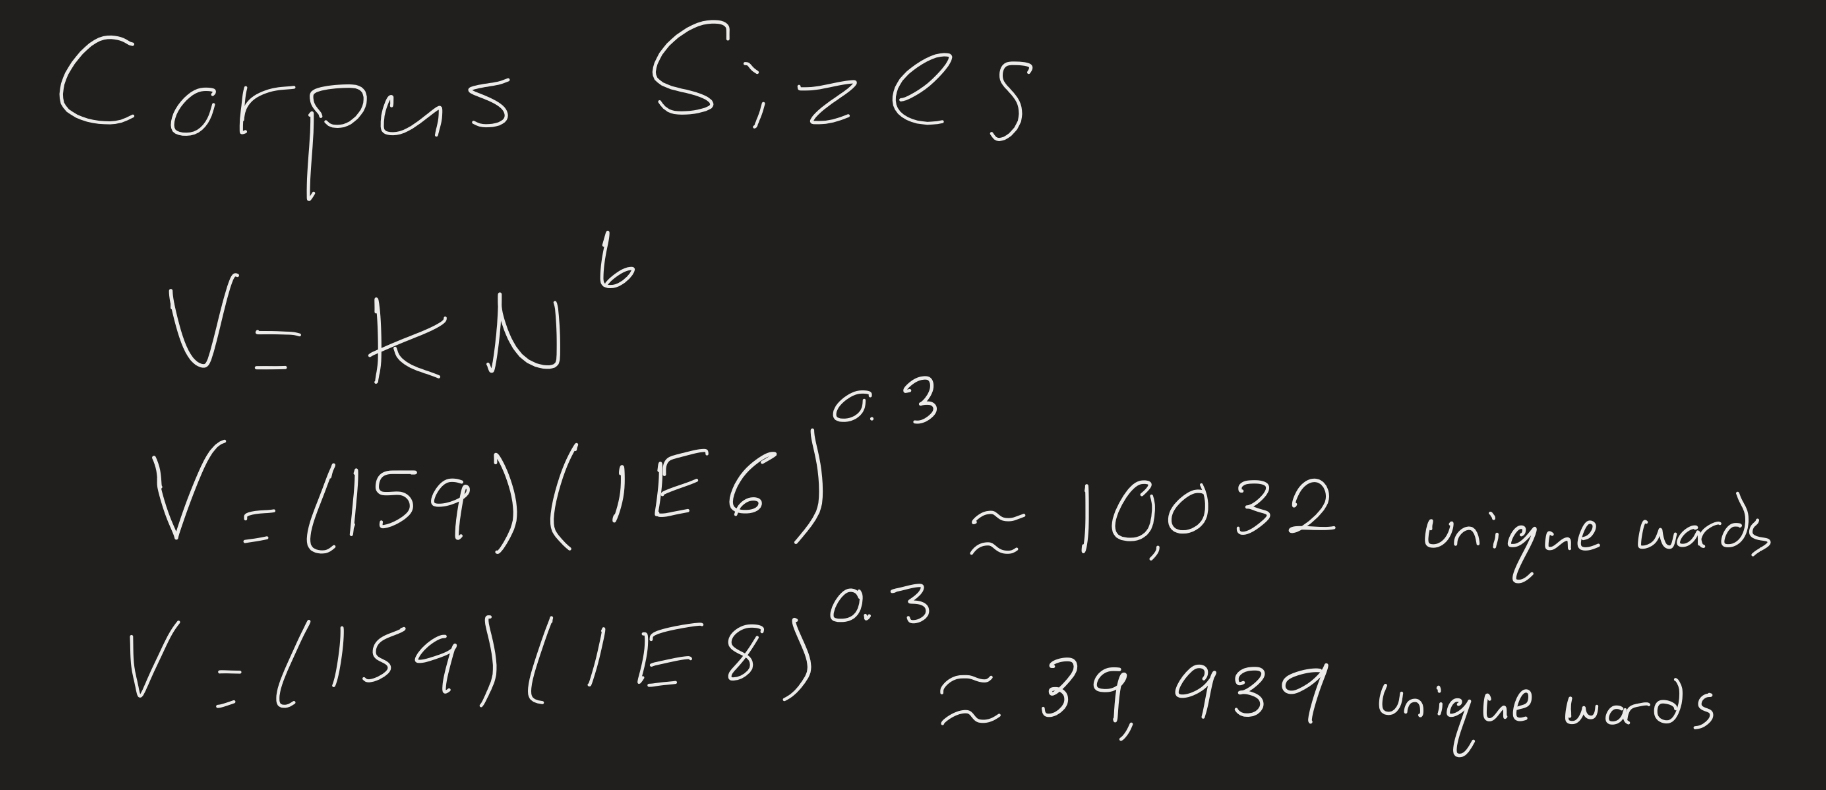 Corpus Sizes
V = kN^b
V = (159)(1E6)^0.3 ≈ 10,032 unique words
V = (159)(1E8)^0.3 ≈ 39,939 unique words